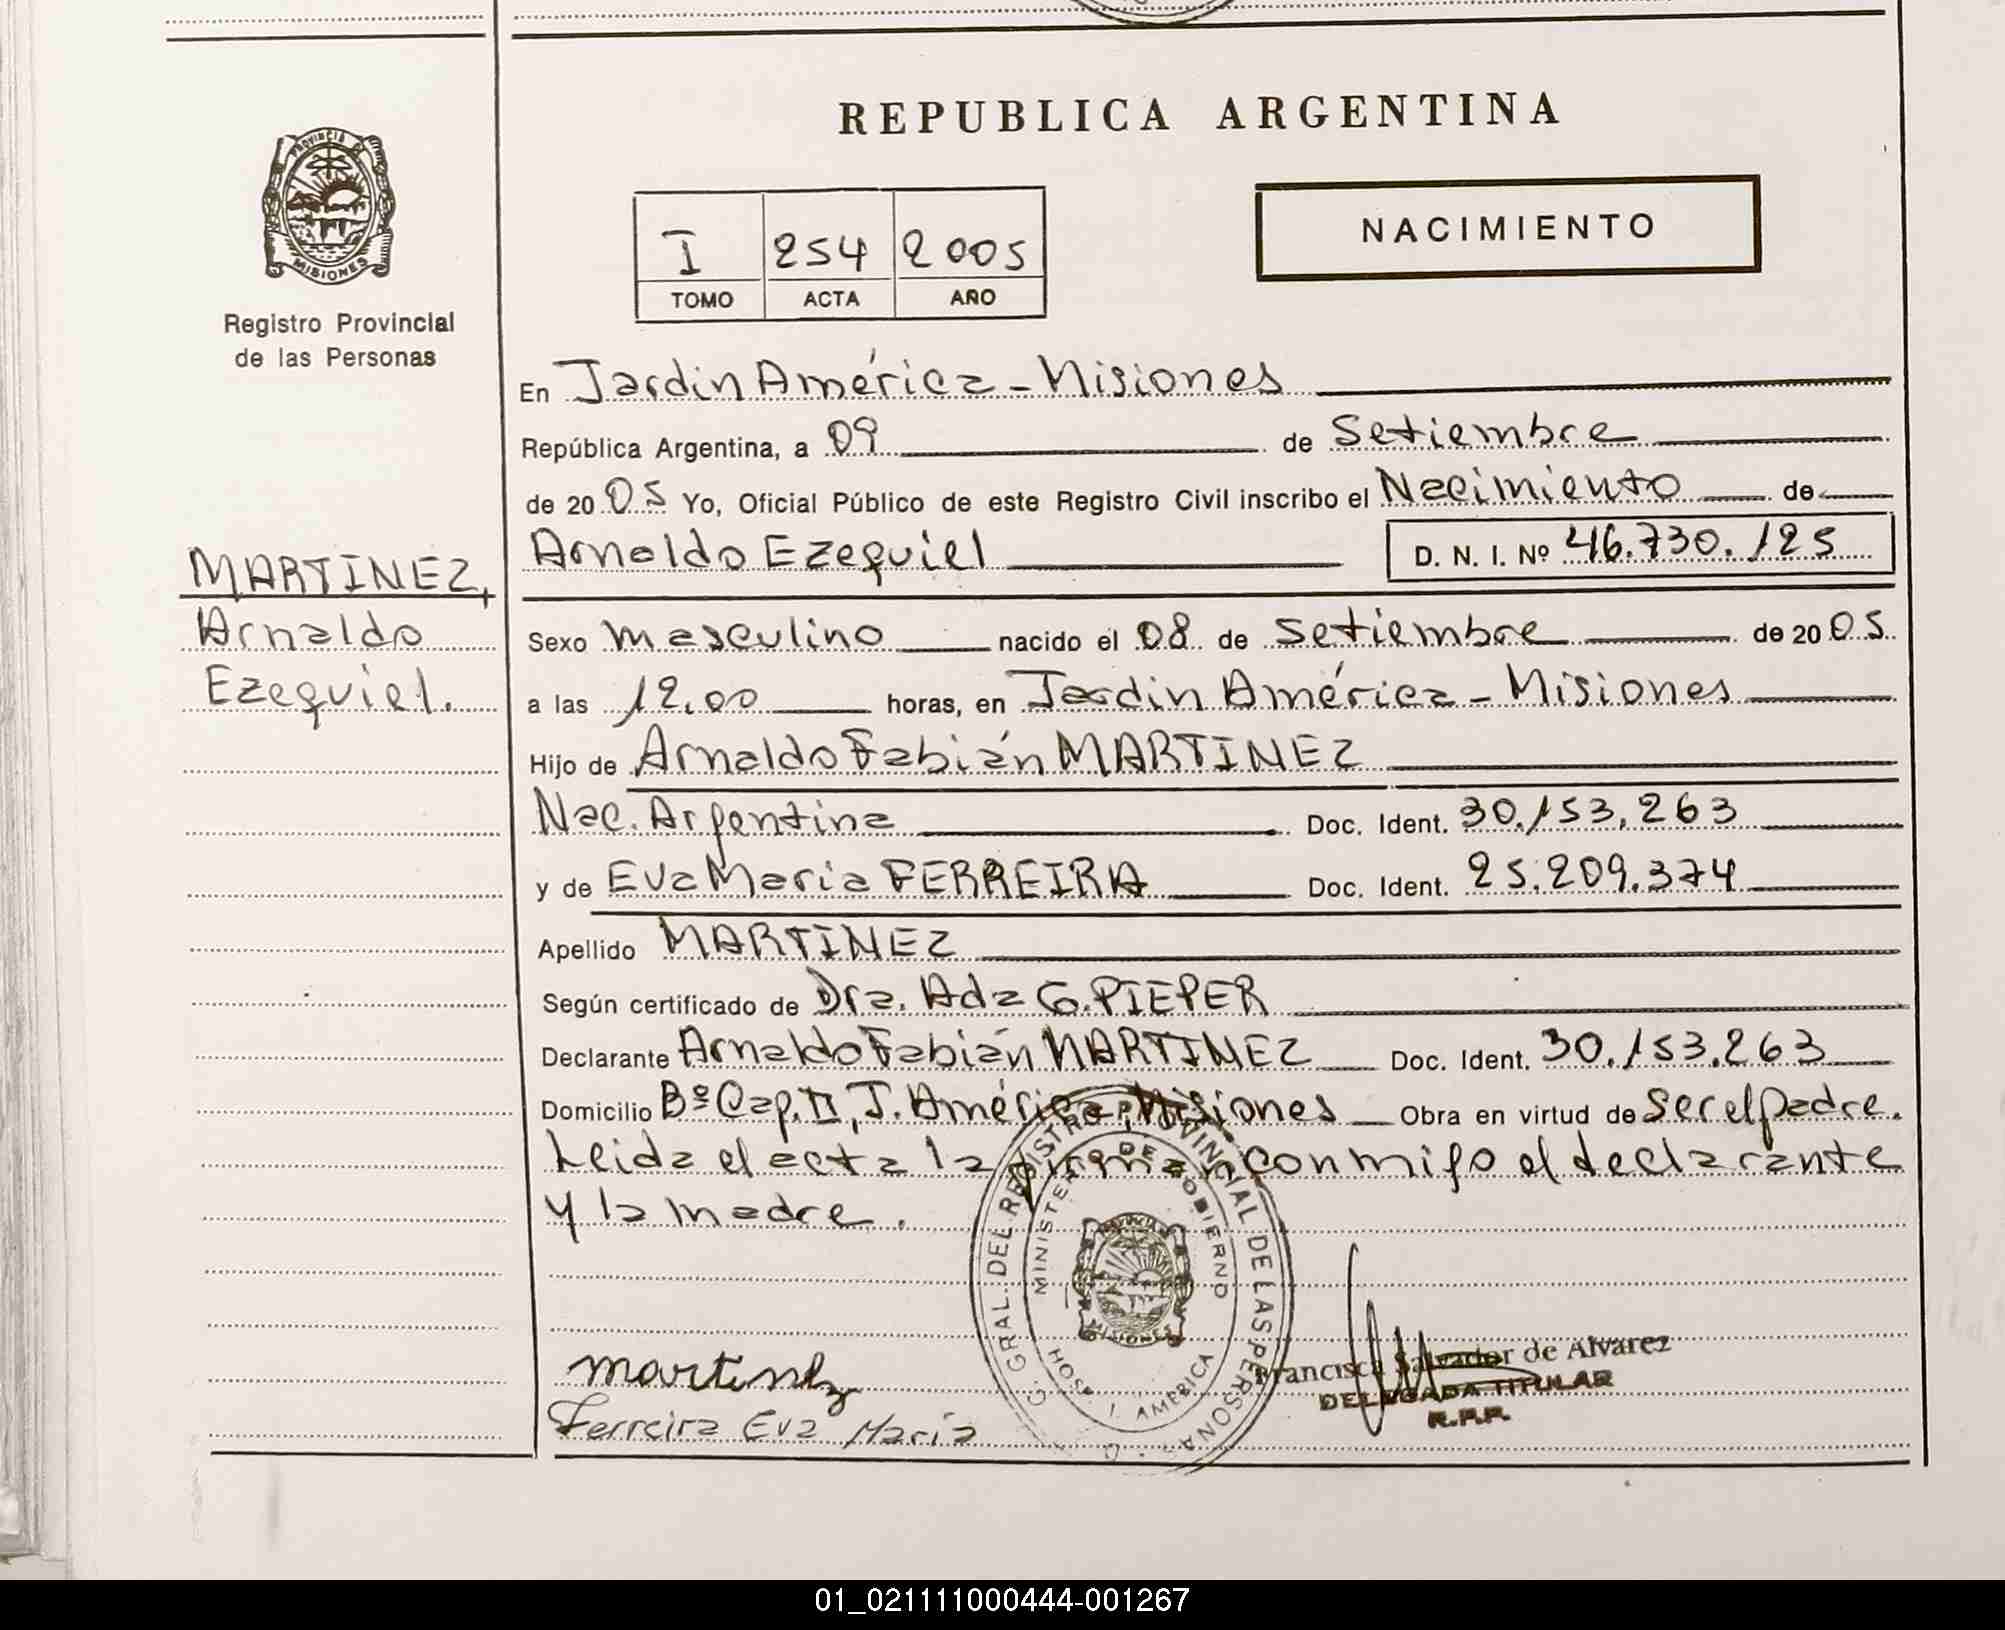 REPUBLICA ARGENTINA
PROVINCIA DE
MISIONES
Registro Provincial
de las Personas
NACIMIENTO
I 254 2005
TOMO ACTA AÑO
En Jardin América - Misiones
República Argentina, a 09 de Setiembre
de 2005 Yo, Oficial Público de este Registro Civil inscribo el Nacimiento de
Arnaldo Ezequiel D. N. I. Nº 46.730.125
MARTINEZ,
Arnaldo
Ezequiel.
Sexo masculino nacido el 08 de Setiembre de 2005.
a las 12.00 horas, en Jardin América - Misiones
Hijo de Arnaldo Fabián MARTINEZ
Nac. Argentina Doc. Ident. 30.153.263
y de Eva Maria FERREIRA Doc. Ident. 25.209.374
Apellido MARTINEZ
Según certificado de Dra. Ada G. PIEPER
Declarante Arnaldo Fabián MARTINEZ Doc. Ident. 30.153.263
Domicilio Bº Cap. II, J. América, Misiones Obra en virtud de ser el padre.
Leida el acta la firman conmigo el declarante
y la madre.
GRAL. DEL REGISTRO PROVINCIAL DE LAS PERSONAS
MINISTERIO DE GOBIERNO
MISIONES
AMERICA
Francisca Salvador de Alvarez
DELEGADA TITULAR
R.P.P.
Martinez
Ferreira Eva María
01_021111000444-001267